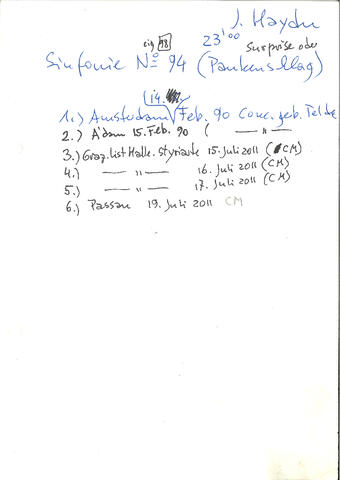 J. Haydn
eig 98 23'00 Surprise oder
Sinfonie No 94 (Paukenschlag)
14.
1.) Amsterdam Feb. 90 Conc. geb. Teldec
2.) A'dam 15. Feb. 90 ( — " —
3.) Graz. List Halle. Styriarte 15. Juli 2011 (CM)
4.) — " — 16. Juli 2011 (CM)
5.) — " — 17. Juli 2011 (CM)
6.) Passau 19. Juli 2011 CM